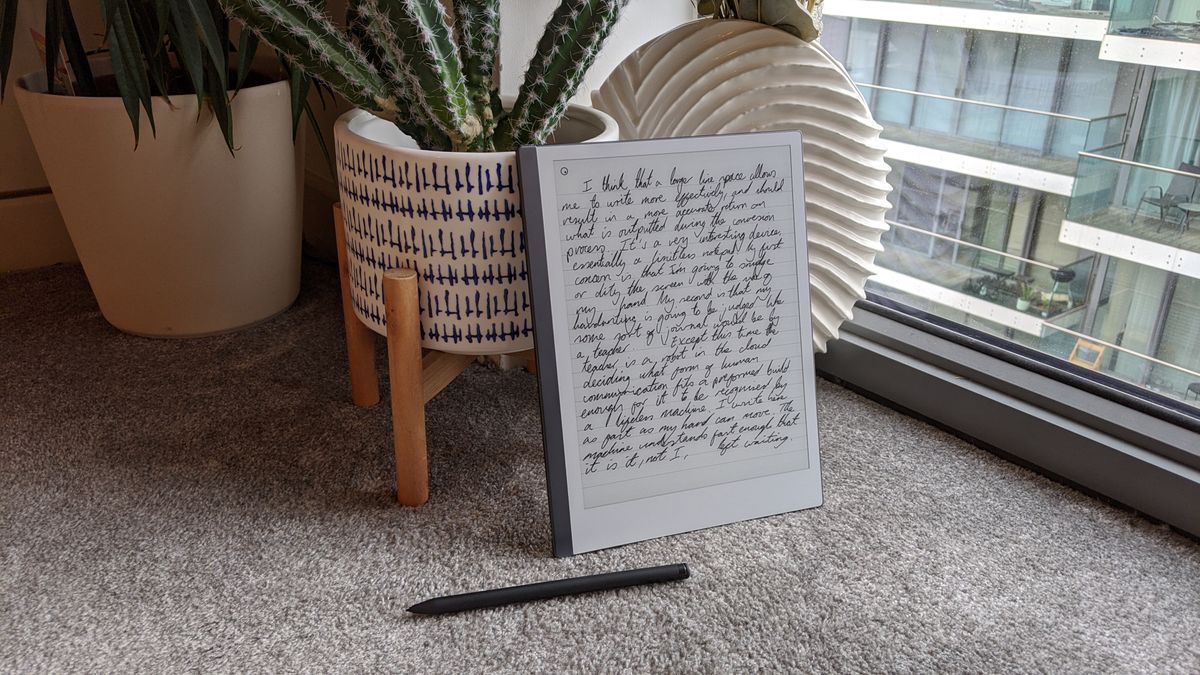 I think that a larger line space allows
me to write more effectively, and should
result in a more accurate return on
what is outputted during the conversion
process. It's a very interesting device,
essentially a limitless notepad. My first
concern is that I'm going to smudge
or dirty the screen with the way of
my hand. My second is that my
handwriting is going to be judged like
some sort of journal would be by
a teacher. Except this time the
teacher is a robot in the cloud
deciding what form of human
communication fits a preformed build
enough for it to be recognised by
a lifeless machine. I write here
as fast as my hand can move. The
machine understands fast enough that
it is it, not I, left waiting.